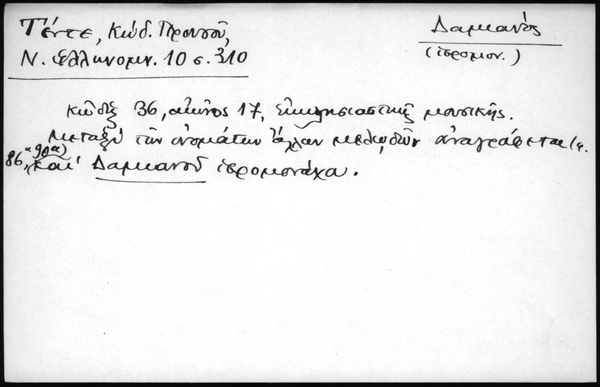 Τέντε, Κώδ. Προυσοῦ,
Ν. Ἑλληνομν. 10 σ. 310
Δαμιανὸς
(ἱερομον.)
Κῶδιξ 36, αἰῶνος 17, Ἐκκλησιαστικῆς μουσικῆς.
Μεταξὺ τῶν ὀνομάτων ἄλλων μελῳδῶν ἀναγράφεται (φ.
86, 90α) καὶ Δαμιανοῦ ἱερομονάχα.